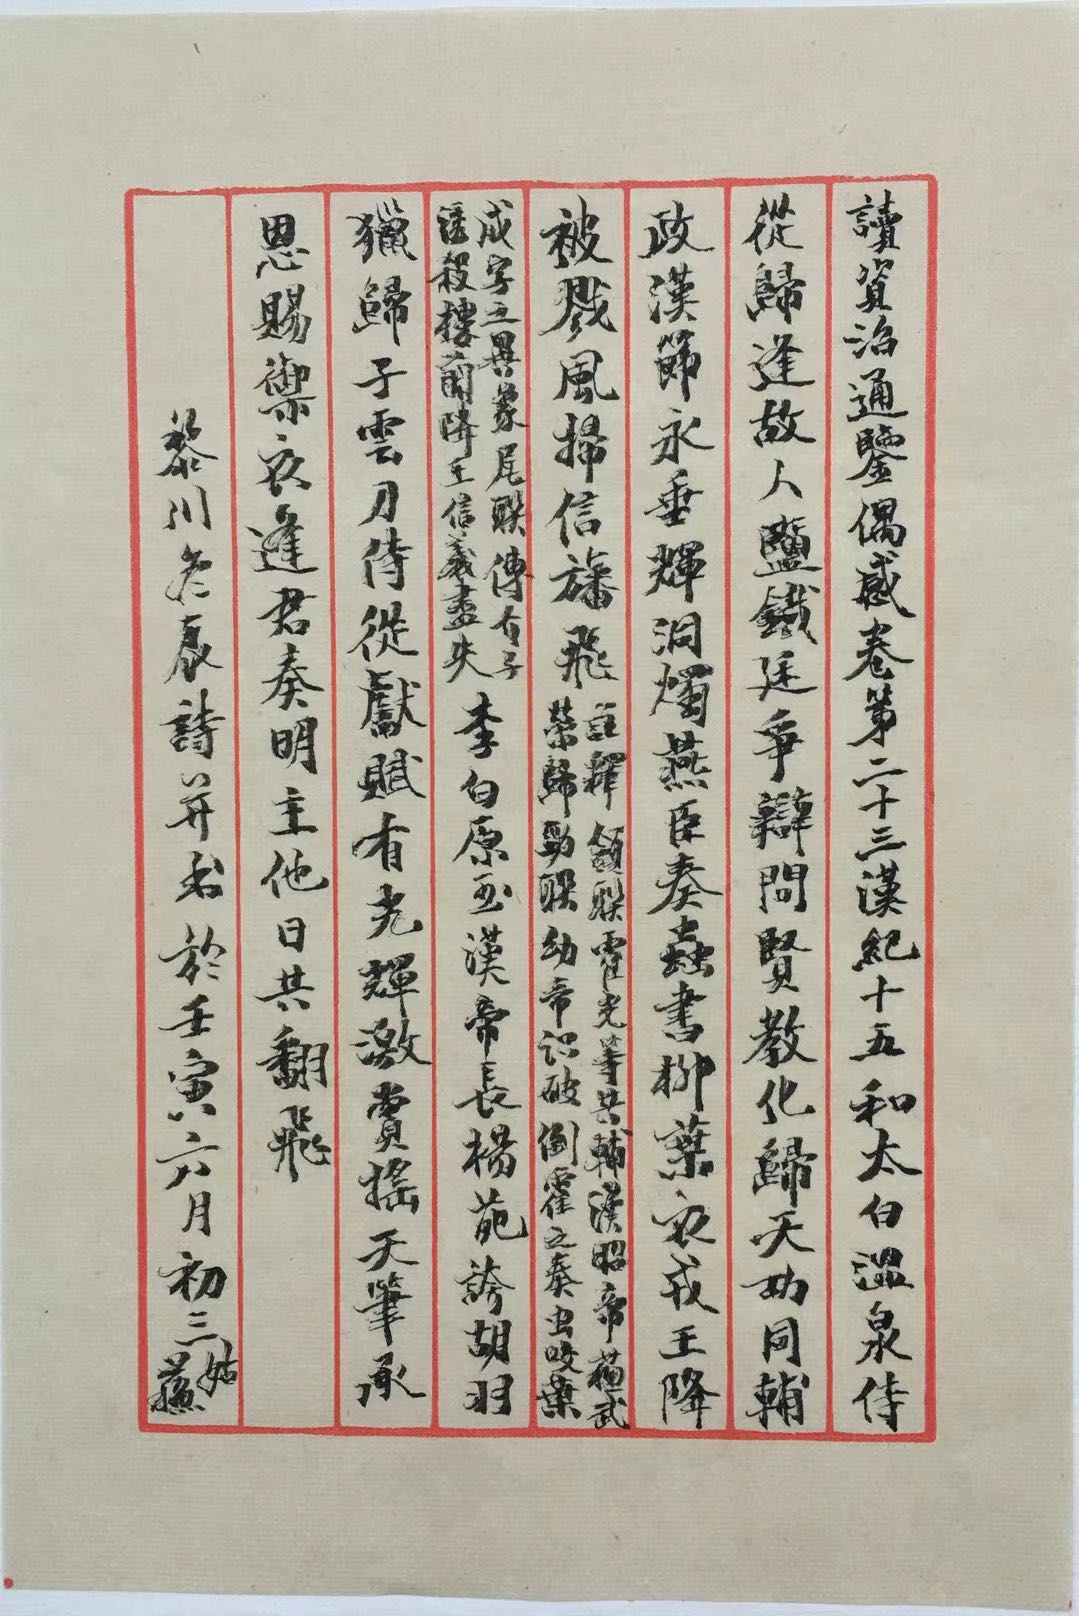 讀資治通鑒偶感卷第二十三漢紀十五和太白溫泉侍
從歸逢故人鹽鐵廷爭辯問賢教化歸天功同輔
政漢節永垂輝洞燭燕臣奏蟲書柳葉衣戎王降
被戮風掃信旛飛
註釋頷聯霍光等共輔漢昭帝蘇武
榮歸頸聯幼帝识破倒霍之奏虫咬葉
成字之異象尾聯傳介子
誘殺樓蘭降王信義盡失
李白原玉漢帝長楊苑誇胡羽
獵歸子雲刀侍從獻賦有光輝激賞搖天筆承
恩賜禦衣逢君奏明主他日共翻飛
黎川詩并书於壬寅六月初三姑蘇